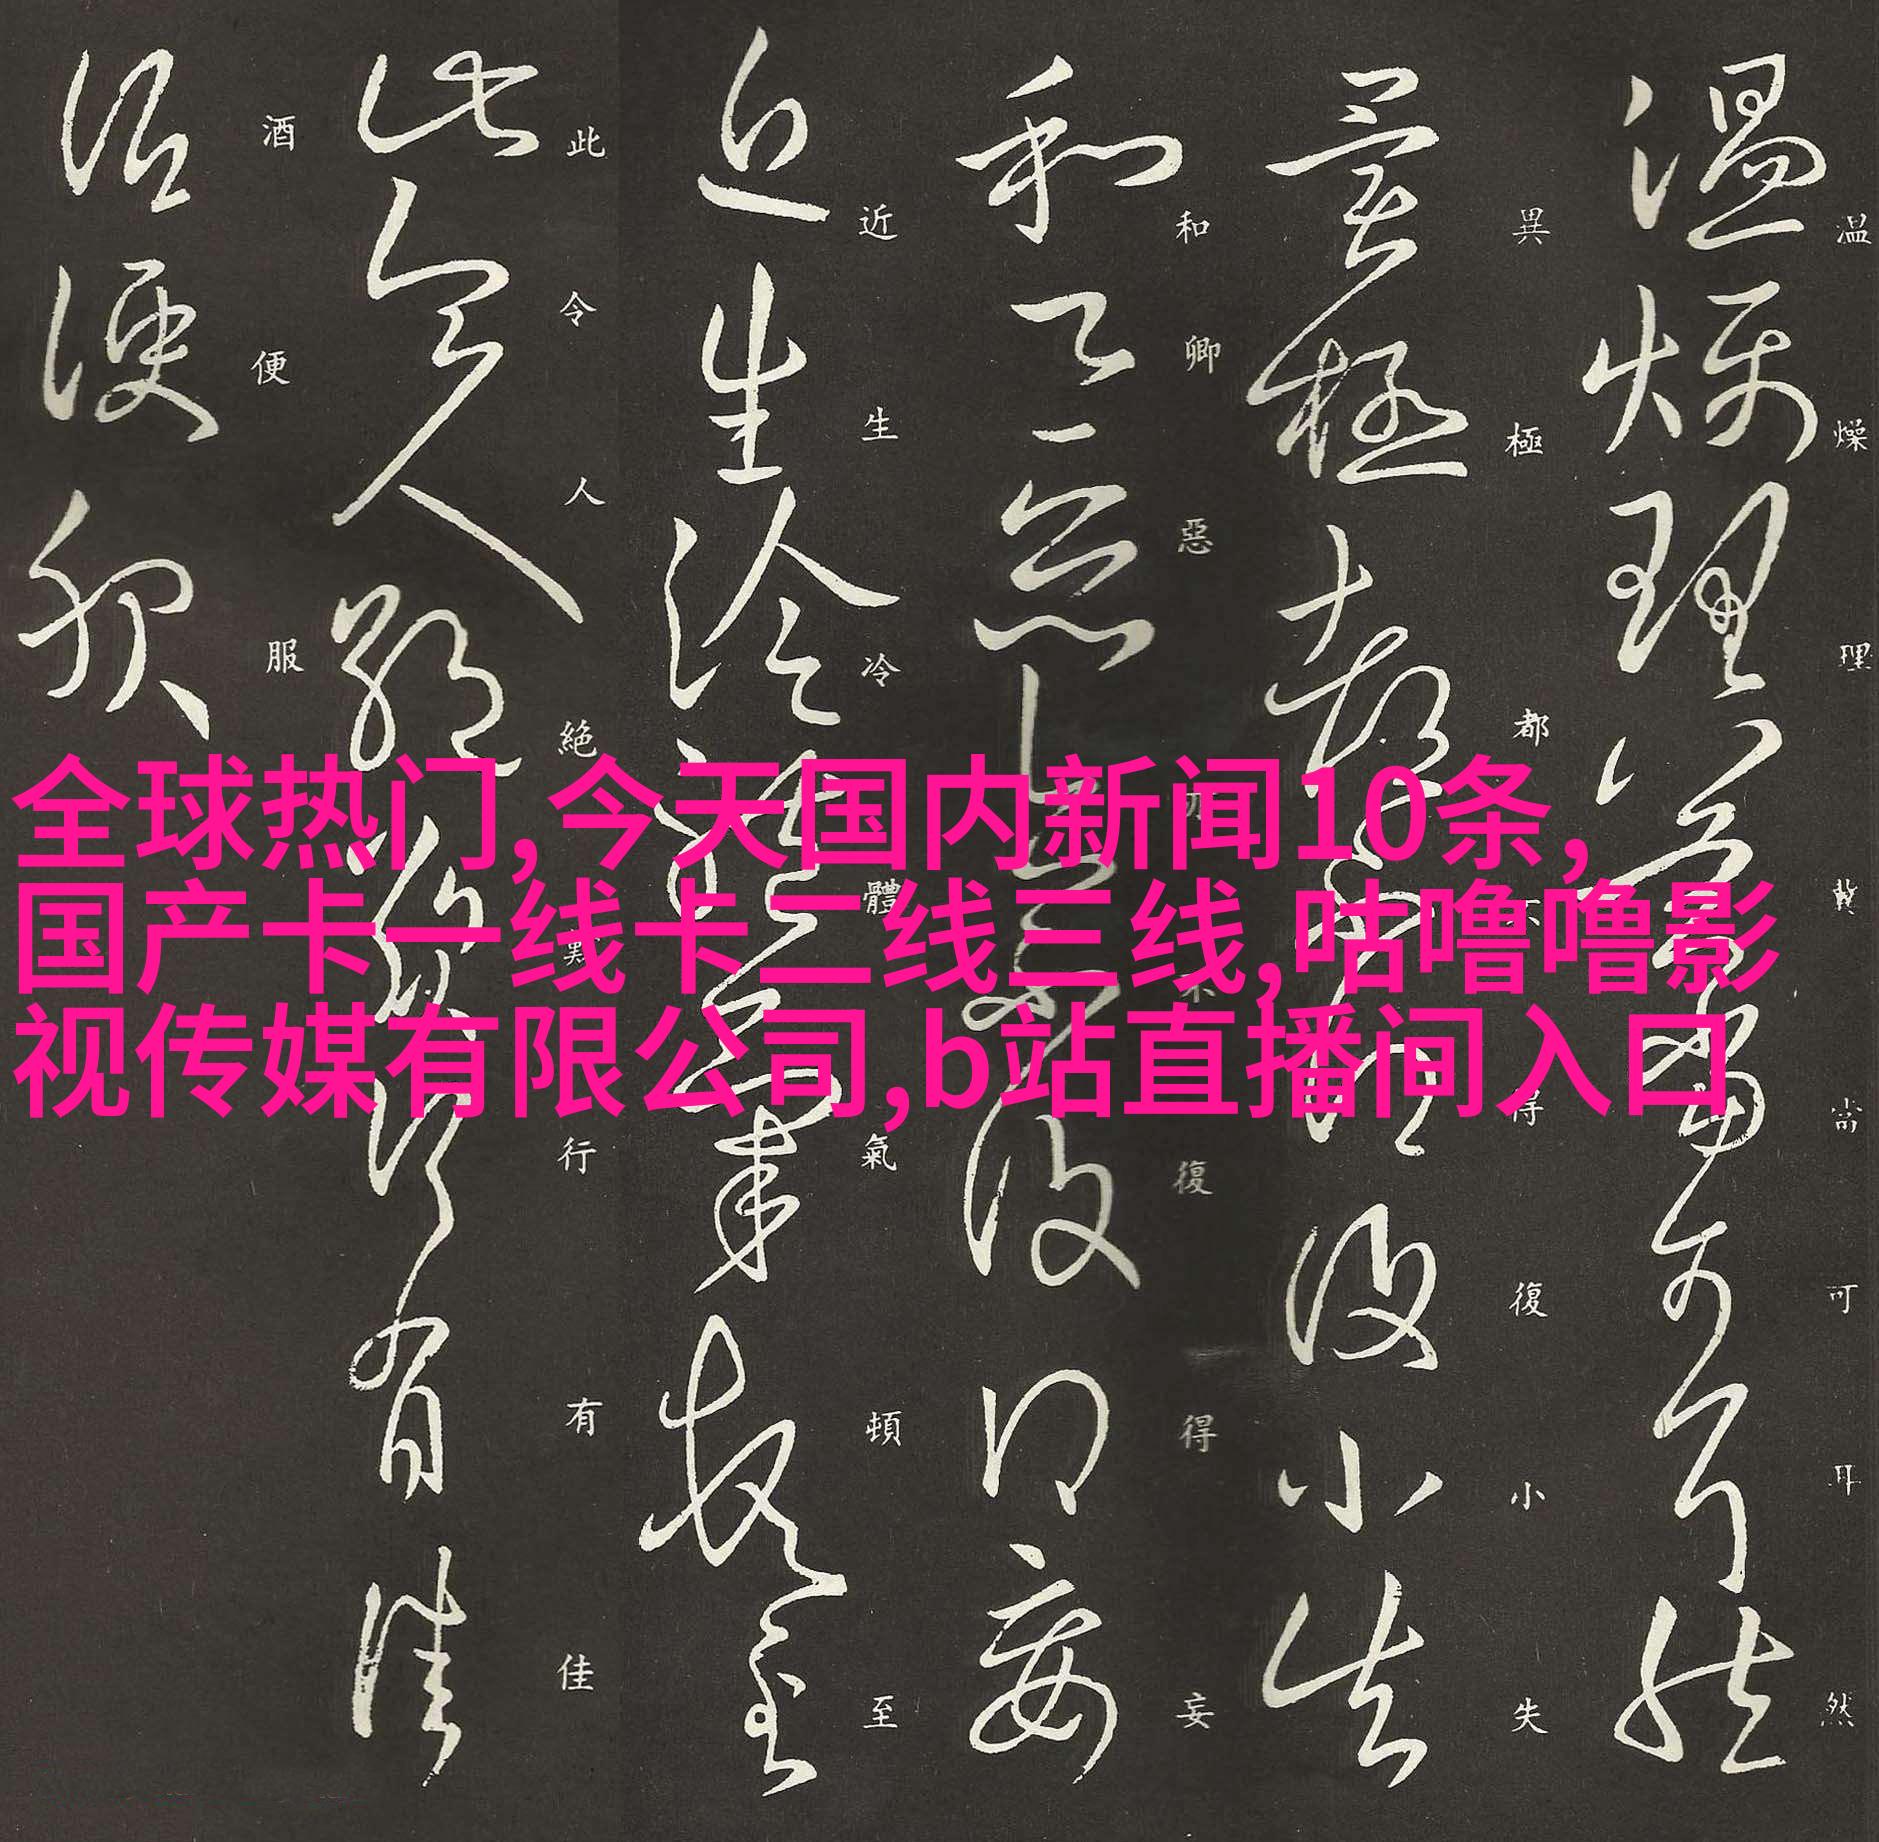 全球热门,今天国内新闻10条,
国产卡一线卡二线三线,咕噜噜影
视传媒有限公司,b站直播间入口
温燥理冀當可耳然
異極都不得復小失
和卿惡勿不復得妄
近生冷體氣頓至
此令人絶行有佳
酒便服